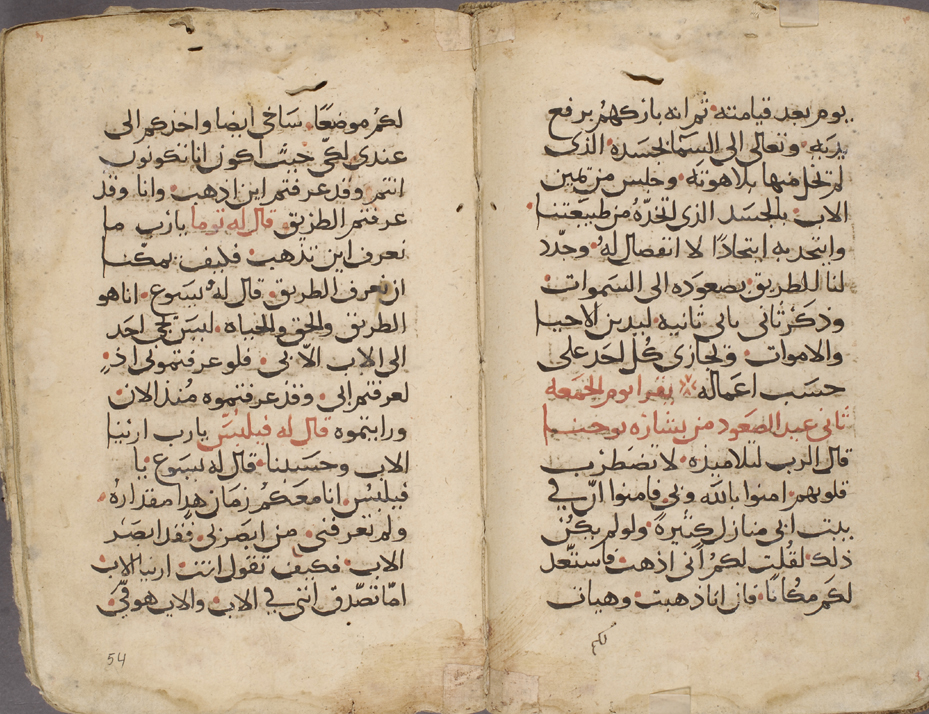 يوم بعد قيامته ثم انه باركهم برفع
يديه وتعالى الى السما بجسده الذى
لم تخل منها بلاهوته وجلس من يمين
الاب بالجسد الذى اتخذه من طبيعتنا
واتحد به اتحادًا لا انفصال له وحدد
لنا للطريق بصعوده الى السموات
وذكر ثانى ياتى ثانيه ليدين الاحيا
والاموات ويجازى كل احد على
حسب اعماله يقرا يوم الجمعه
ثانى عيد الصعود من بشاره يوحنا
قال الرب لتلاميذه لا تضطرب
قلوبهم امنوا بالله وبى فامنوا ان فى
بيت ابى منازل كثيرة ولو لم يكن
ذلك لقلت لكم انى اذهب فاستعد
لكم مكانًا فان انا ذهبت وهيات
لكم
لكم موضعًا ساجى ايضا واخذكم الى
عندى لكى حيث اكون انا تكونون
انتم وقد عرفتم اين اذهب وانا وقد
عرفتم الطريق قال له توما يارب ما
نعرف اين تذهب فكيف يمكننا
ان نعرف الطريق قال له يسوع انا هو
الطريق والحق والحياه ليس يجى احد
الى الاب الا بى فلو عرفتمونى اذ
لعرفتم ابى وقد عرفتموه منذ الان
ورايتموه قال له فيلبس يارب ارينا
الاب وحسبنا قال له يسوع يا
فيلبس انا معكم زمان هذا مقداره
ولم تعرفنى من ابصرنى فقد ابصر
الاب فكيف تقول انت ارينا الاب
اما تصدق اننى فى الاب والاب هو فى
54